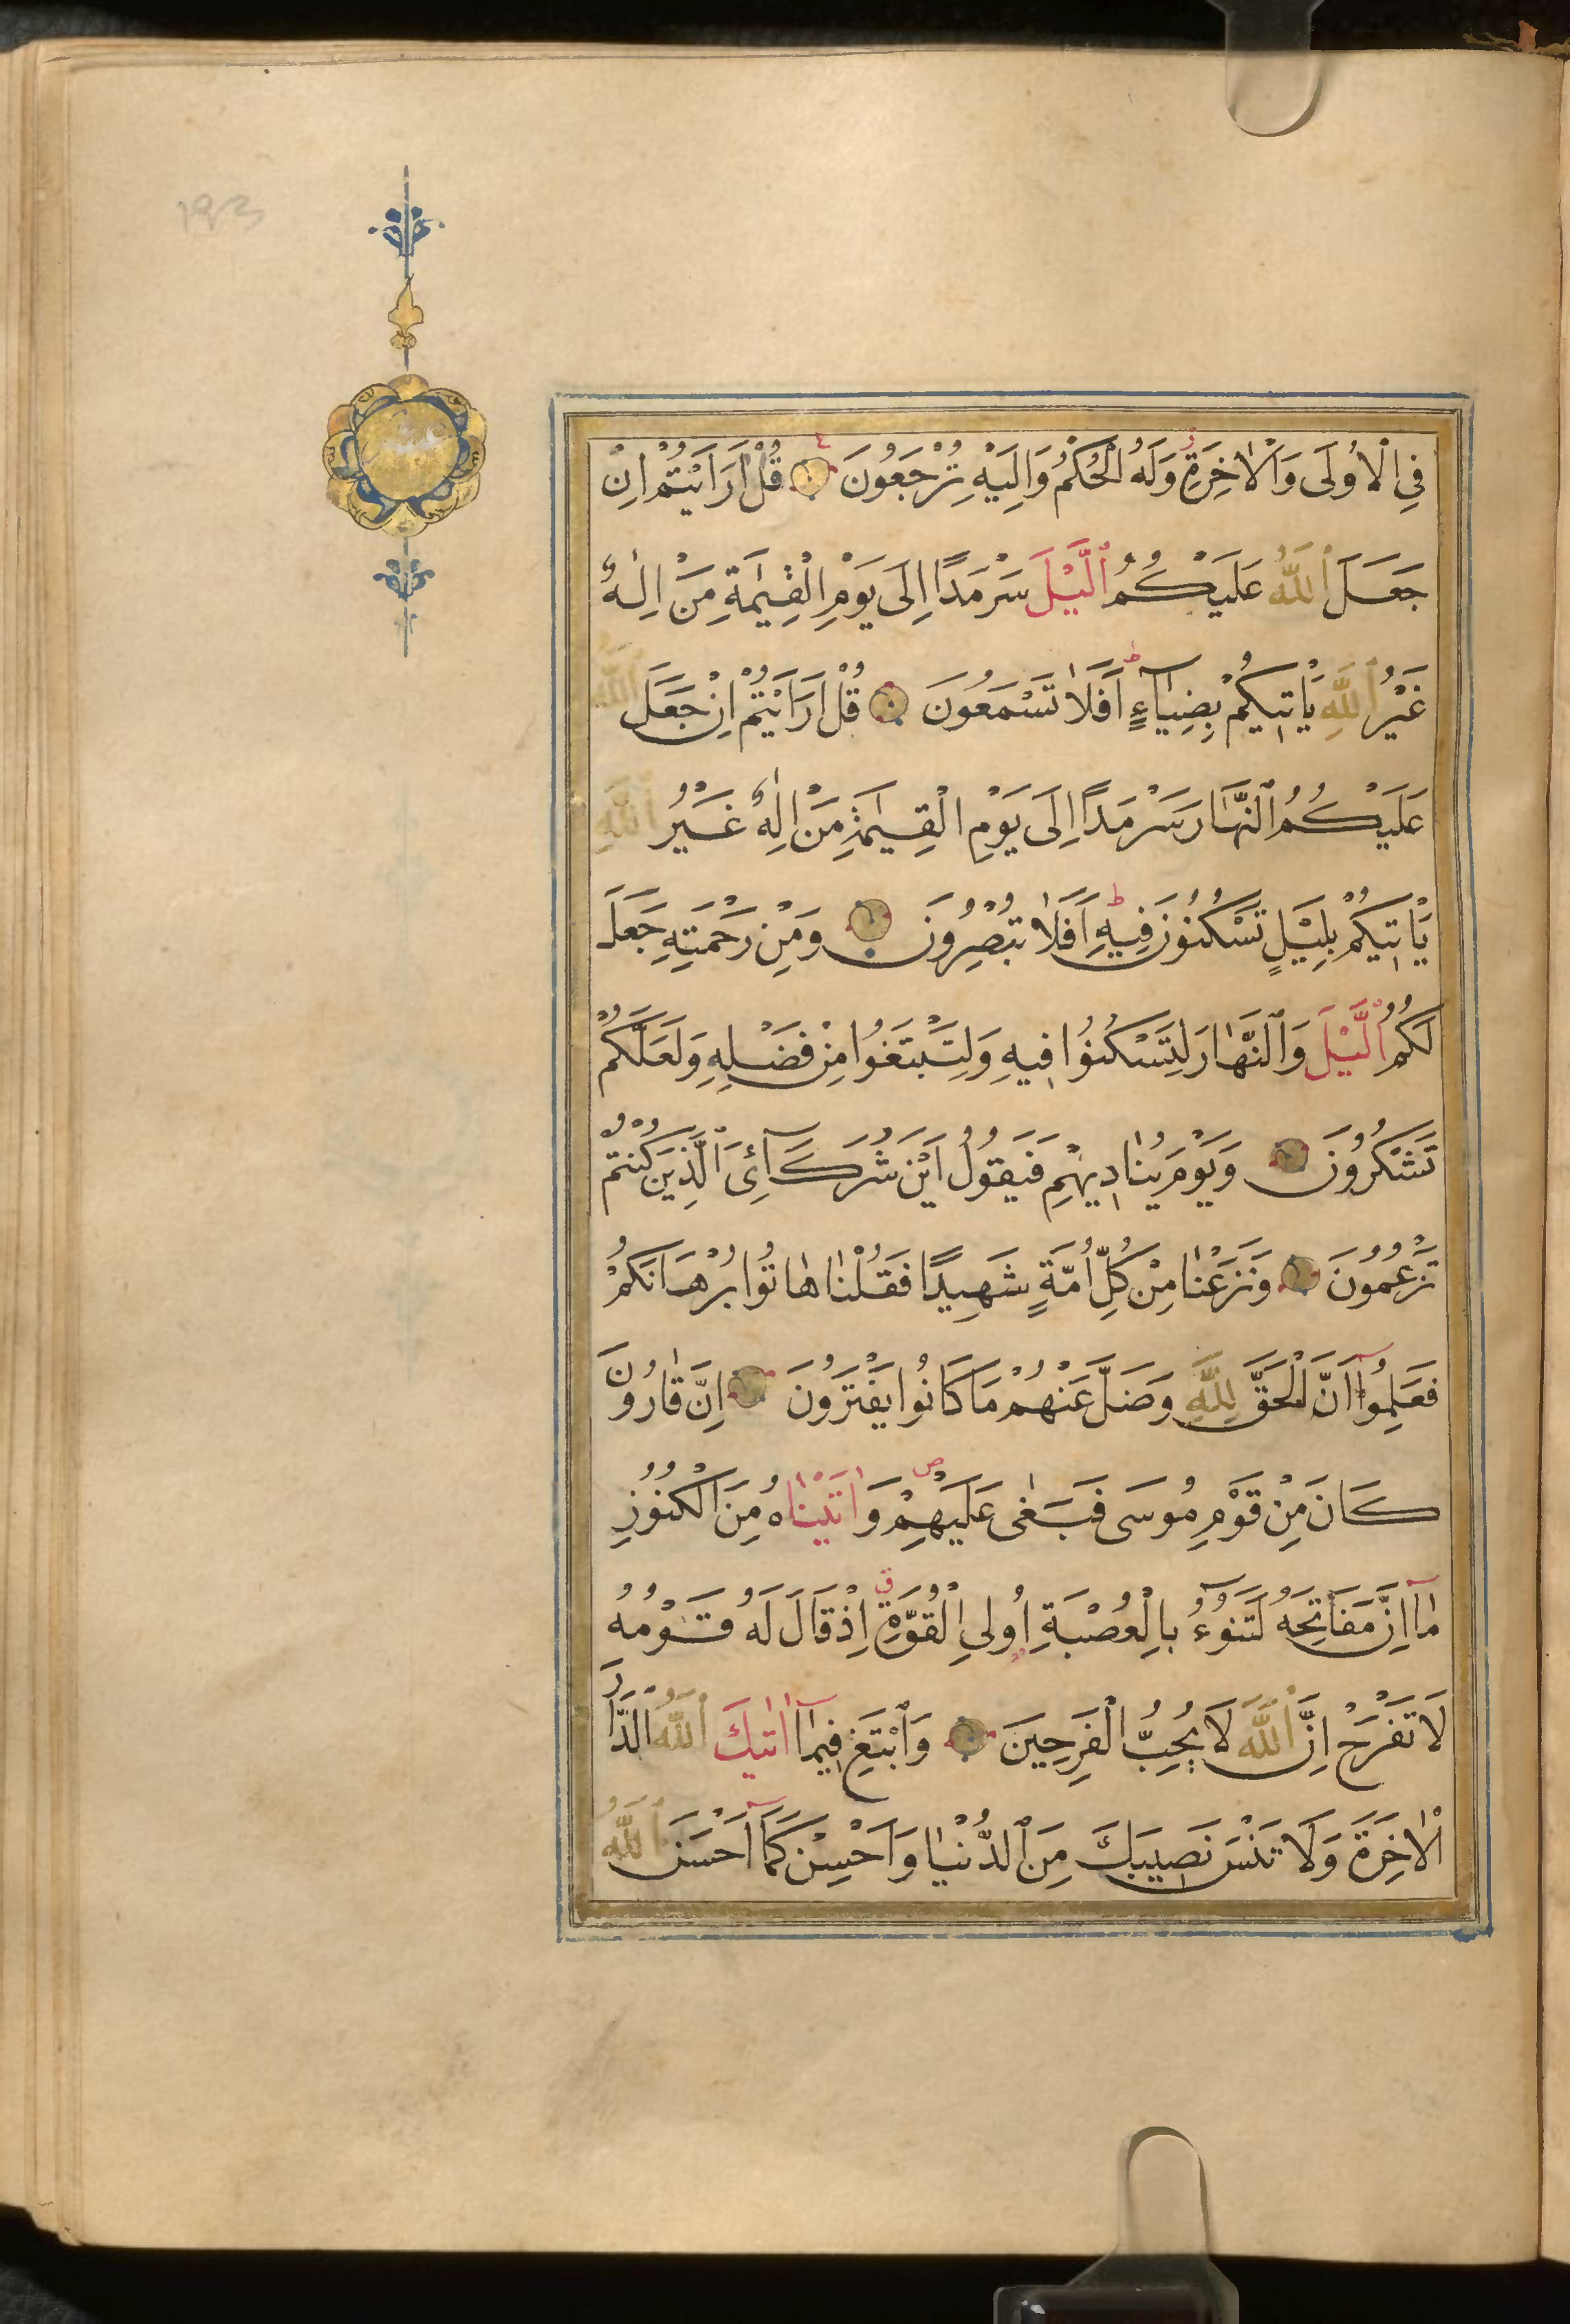 193
فِي الْاُولَى وَالْاٰخِرَةِ وَلَهُ الْحُكْمُ وَاِلَيْهِ تُرْجَعُونَ قُلْ اَرَاَيْتُمْ اِنْ
جَعَلَ اللّٰهُ عَلَيْكُمُ الَّيْلَ سَرْمَدًا اِلَى يَوْمِ الْقِيٰمَةِ مَنْ اِلٰهٌ
غَيْرُ اللّٰهِ يَاْتِيكُمْ بِضِيَآءٍ ط اَفَلَا تَسْمَعُونَ قُلْ اَرَاَيْتُمْ اِنْ جَعَلَ اللّٰهُ
عَلَيْكُمُ النَّهَارَ سَرْمَدًا اِلَى يَوْمِ الْقِيٰمَةِ مَنْ اِلٰهٌ غَيْرُ اللّٰهِ
يَاْتِيكُمْ بِلَيْلٍ تَسْكُنُونَ فِيهِ ط اَفَلَا تُبْصِرُونَ وَمِنْ رَحْمَتِهِ جَعَلَ
لَكُمُ الَّيْلَ وَالنَّهَارَ لِتَسْكُنُوا فِيهِ وَلِتَبْتَغُوا مِنْ فَضْلِهِ وَلَعَلَّكُمْ
تَشْكُرُونَ وَيَوْمَ يُنَادِيهِمْ فَيَقُولُ اَيْنَ شُرَكَآئِىَ الَّذِينَ كُنْتُمْ
تَزْعُمُونَ وَنَزَعْنَا مِنْ كُلِّ اُمَّةٍ شَهِيدًا فَقُلْنَا هَاتُوا بُرْهَانَكُمْ
فَعَلِمُوا اَنَّ الْحَقَّ لِلّٰهِ وَضَلَّ عَنْهُمْ مَا كَانُوا يَفْتَرُونَ اِنَّ قَارُونَ
كَانَ مِنْ قَوْمِ مُوسَى فَبَغٰى عَلَيْهِمْ ص وَاٰتَيْنَاهُ مِنَ الْكُنُوزِ
مَآ اِنَّ مَفَاتِحَهُ لَتَنُوءُ بِالْعُصْبَةِ اُولِي الْقُوَّةِ ق اِذْ قَالَ لَهُ قَوْمُهُ
لَا تَفْرَحْ اِنَّ اللّٰهَ لَا يُحِبُّ الْفَرِحِينَ وَابْتَغِ فِيمَآ اٰتٰيكَ اللّٰهُ الدَّارَ
الْاٰخِرَةَ وَلَا تَنْسَ نَصِيبَكَ مِنَ الدُّنْيَا وَاَحْسِنْ كَمَآ اَحْسَنَ اللّٰهُ